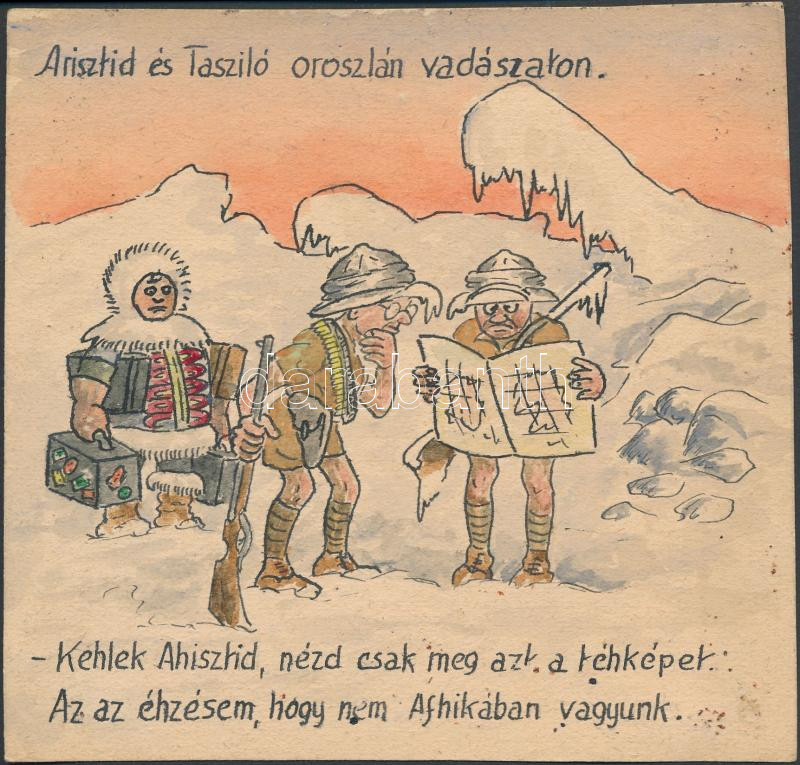 Arisztid és Tasziló oroszlán vadászaton.
darabanth
- Kehlek Ahisztid, nézd csak meg azt a téhképet.
Az az éhzésem, hogy nem Afhikában vagyunk.